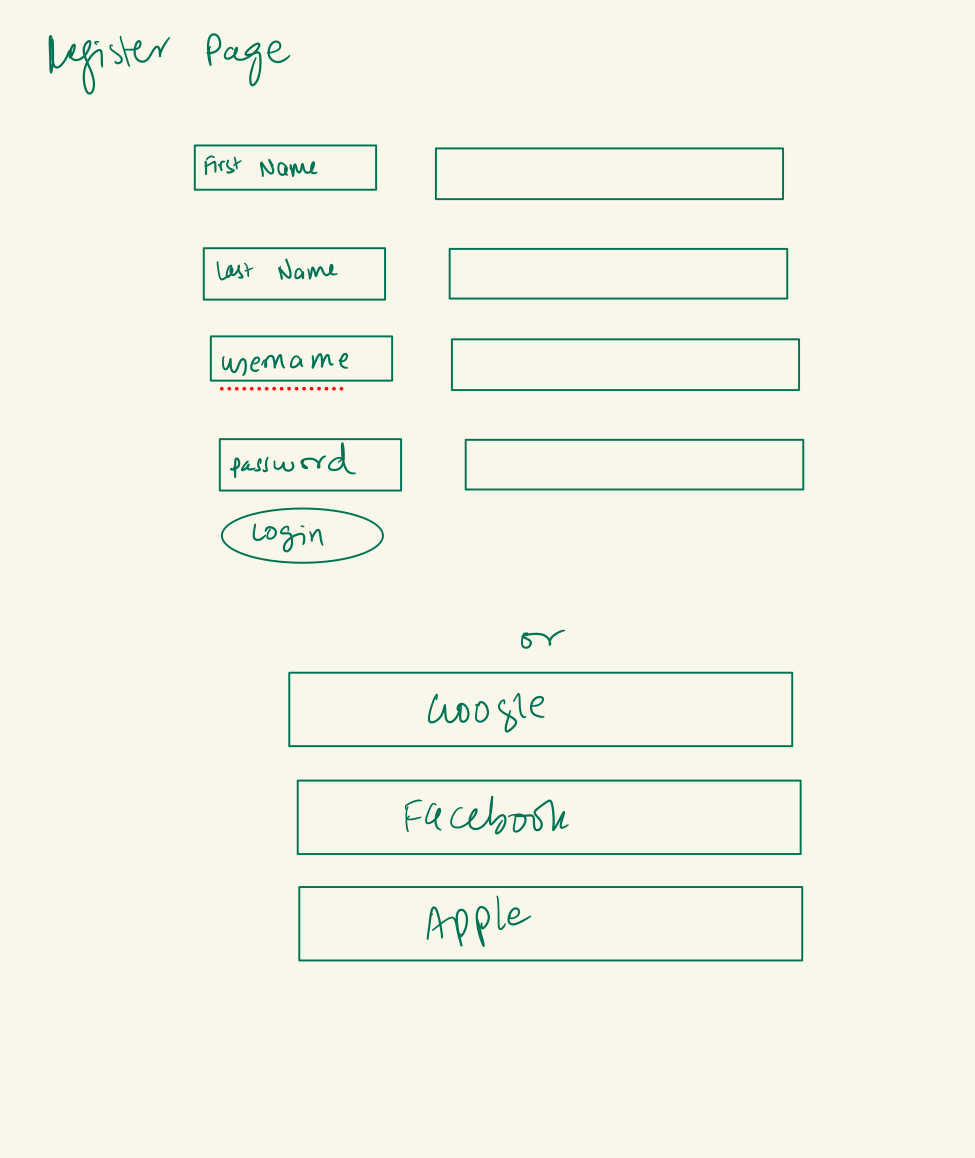 Register Page
First Name
Last Name
username
password
Login
or
Google
Facebook
Apple